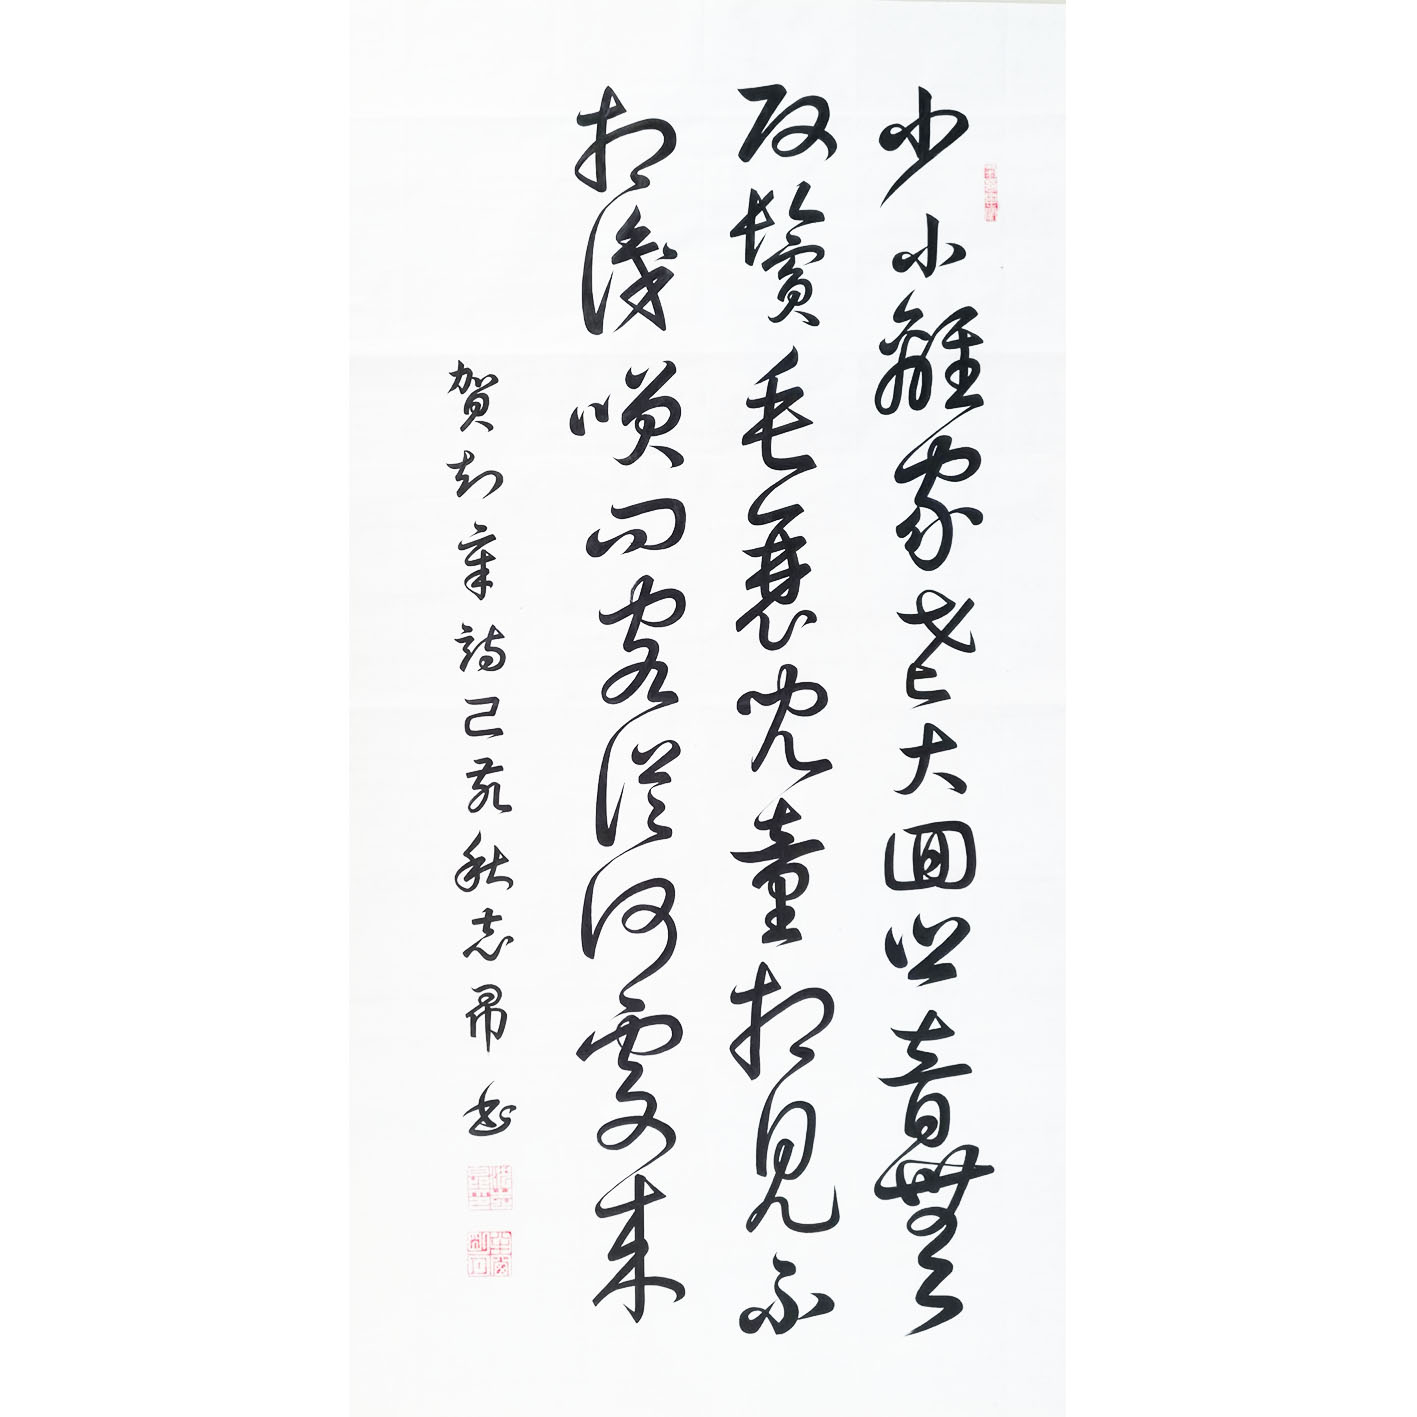 少小離家老大囬鄉音無
改鬢毛衰兒童相見不
相識咲問客從何處來
賀知章詩己亥秋志昂書